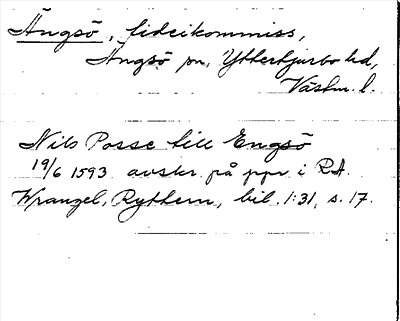 Ängsö, fideikommiss,
Ängsö sn, Ytterbjurbo hd,
Västm. l.
Nils Posse till Engsö
19/6 1593 avskr. på ppr i RA.
Wrangel, Ryttern, bil. 1:31, s. 17.